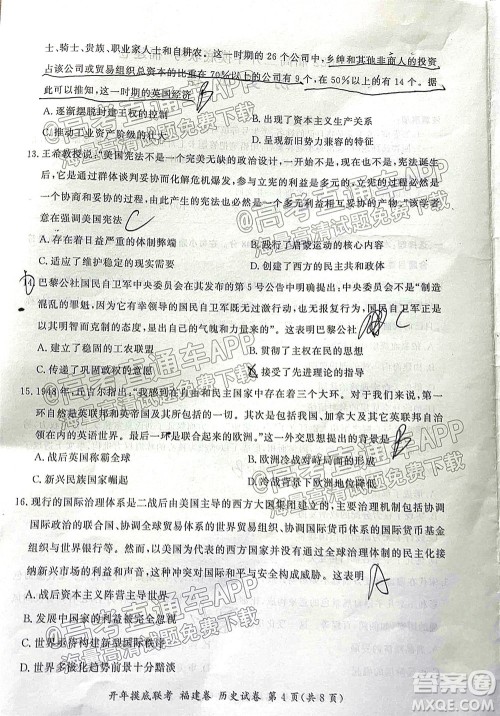 士、骑士、贵族、职业家人士和自耕农。这一时期的 26 个公司中，乡绅和其他非商人的投资
占该公司或贸易组织总资本的比重在 70%以上的公司有 9 个，在 50%以上的有 14 个。据
此可以推知，这一时期的英国经济 B
A. 逐渐摆脱封建王权的控制
B. 出现了资本主义生产关系
C. 推动工业资产阶级的壮大
D. 呈现新旧势力兼容的特征
13. 王希教授说：“美国宪法不是一个完美无缺的政治设计，而是一个实用的机制。宪法诞生
后，它是通过群体谈判与妥协而化解危机爆发，参与多元的利益的力量越多，宪法就越成为一
个协商和妥协的过程，由此产生的宪法也必然成为一个多元利益相互妥协的产物。”该学者
意在强调美国宪法 C
A. 存在着日益严重的体制弊端
B. 践行了启蒙运动的核心内容
C. 适应了维护稳定的现实需要
D. 创造了西方的民主共和政体
14. 巴黎公社国民自卫军中央委员会在其发布的第 5 号公告中明确提出，中央委员会不是“制造
混乱的罪魁，因为它有幸领导的国民自卫军既无过激行动，也无报复行为，国民自卫军正是以
其明智而克制的态度，表现出来自由自己的气魄和力量来的”。这表明巴黎公社 C
A. 建立了稳固的工农联盟
B. 贯彻了主权在民的思想
C. 传承了巩固政权的意愿
D. 接受了先进理论的指导
15. 1948年，丘吉尔指出：“我感到在自由和民主国家中存在着三个大环。对于我们来说，第一环
自然是英联邦和英帝国。其次是包括我国、加拿大及其他英联邦自治领在内的英语世界。
最后一环是联合起来的欧洲。”这一外交思想提出的背景是 B
A. 战后英国称霸全球
B. 欧洲冷战对峙局面的形成
C. 新兴民族国家崛起
D. 冷战背景下欧洲地位降低
16. 现行的国际治理体系是二战后由美国主导的西方大国集团建立的，主要包括协调国际
政治的联合国、协调全球贸易体系的世界贸易组织、协调国际货币体系的国际货币基金
组织与世界银行等，然而，以美国为代表的西方大国拒绝通过全球治理体制的民主化来
接纳新兴市场的利益和声音，这种冲突对国际和平与安全构成威胁。这表明 A
A. 战后资本主义阵营主导世界
B. 发展中国家的利益被完全忽视
C. 世界各国冲突矛盾不断升级
D. 世界多极化趋势前景十分黯淡
开年摸底联考 福建卷 历史试卷 第 4 页(共 8 页)
@高考直通车APP
海量高清试题免费下载
答案圈
MXQE.COM